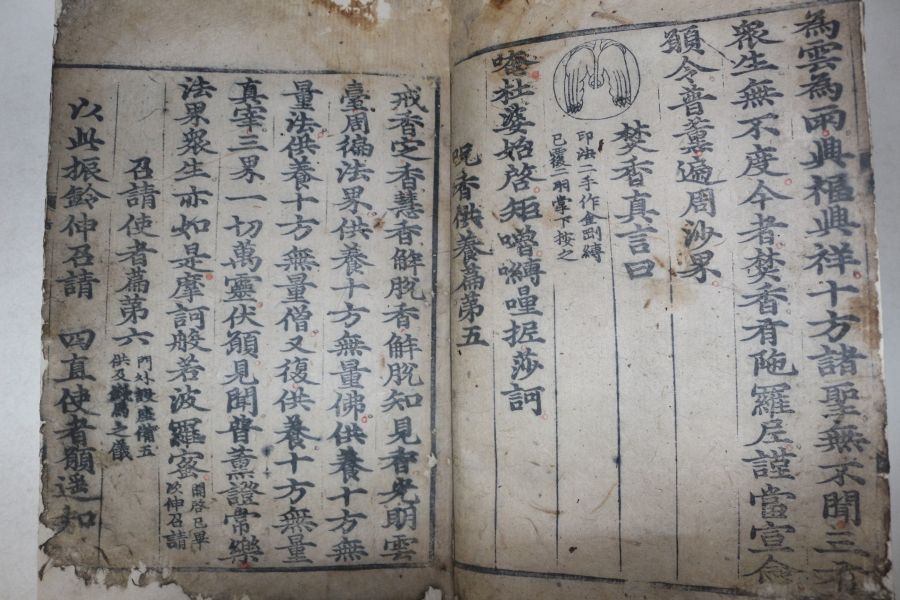 為雲為雨興福興祥十方諸聖無不聞三有
衆生無不度今者焚香有陁羅尼謹當宣念
願令普薰遍周沙界
焚香真言曰
印法二手作金剛縛
已覆二羽掌下按之
杜婆始啓矩嚕嚩哩抳莎訶
呪香供養篇第五
戒香定香慧香解脫香解脫知見香光明雲
臺周徧法界供養十方無量佛供養十方無
量法供養十方無量僧又復供養十方無量
真宰三界一切萬靈伏願見聞普薰證常樂
法界衆生亦如是摩訶般若波羅蜜
開啓已畢
次伸召請
召請使者篇第六
門外設座備五
供及之儀
以此振鈴伸召請 四直使者願遥知